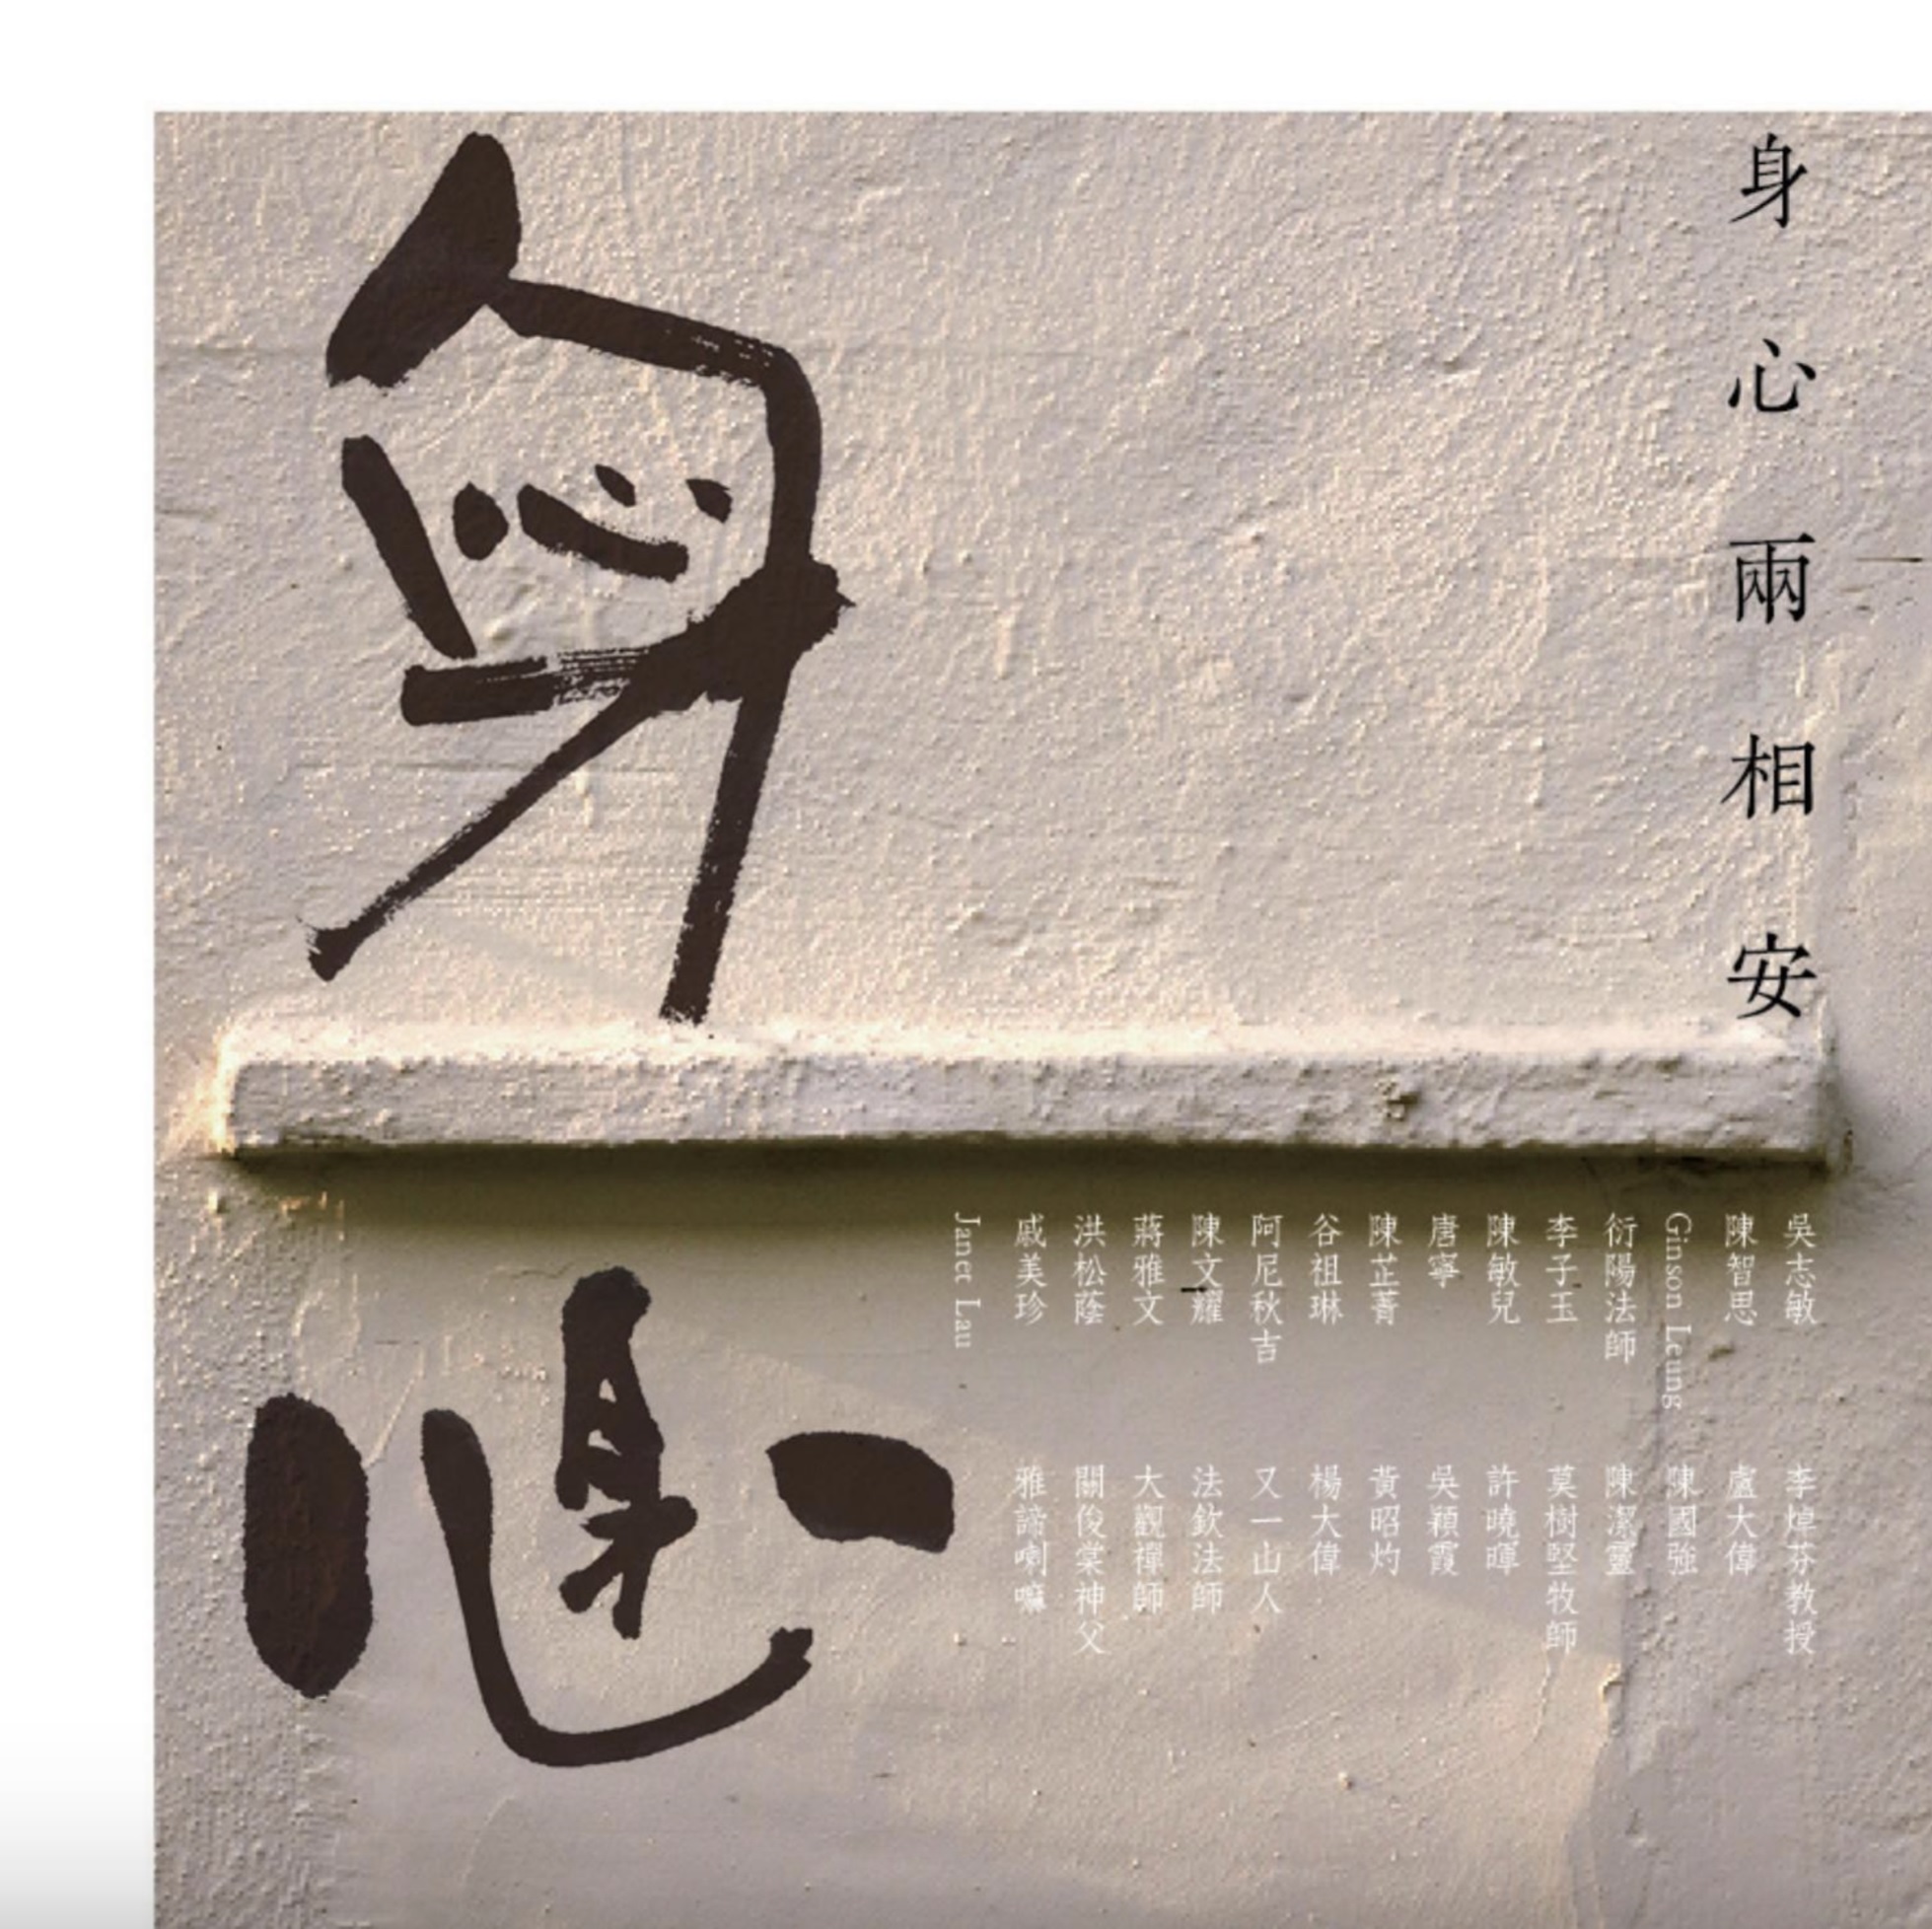 身心兩相安
吳志敏
陳智思
Ginson Leung
衍陽法師
李子玉
陳敏兒
唐寧
陳芷菁
谷祖琳
阿尼秋吉
陳文耀
蔣雅文
洪松蔭
戚美珍
Janet Lau
李焯芬教授
盧大偉
陳國強
陳潔靈
莫樹堅牧師
許曉暉
吳穎霞
黃昭灼
楊大偉
又一山人
法欽法師
大觀禪師
關俊棠神父
雅諦喇嘛
身
心
心
身